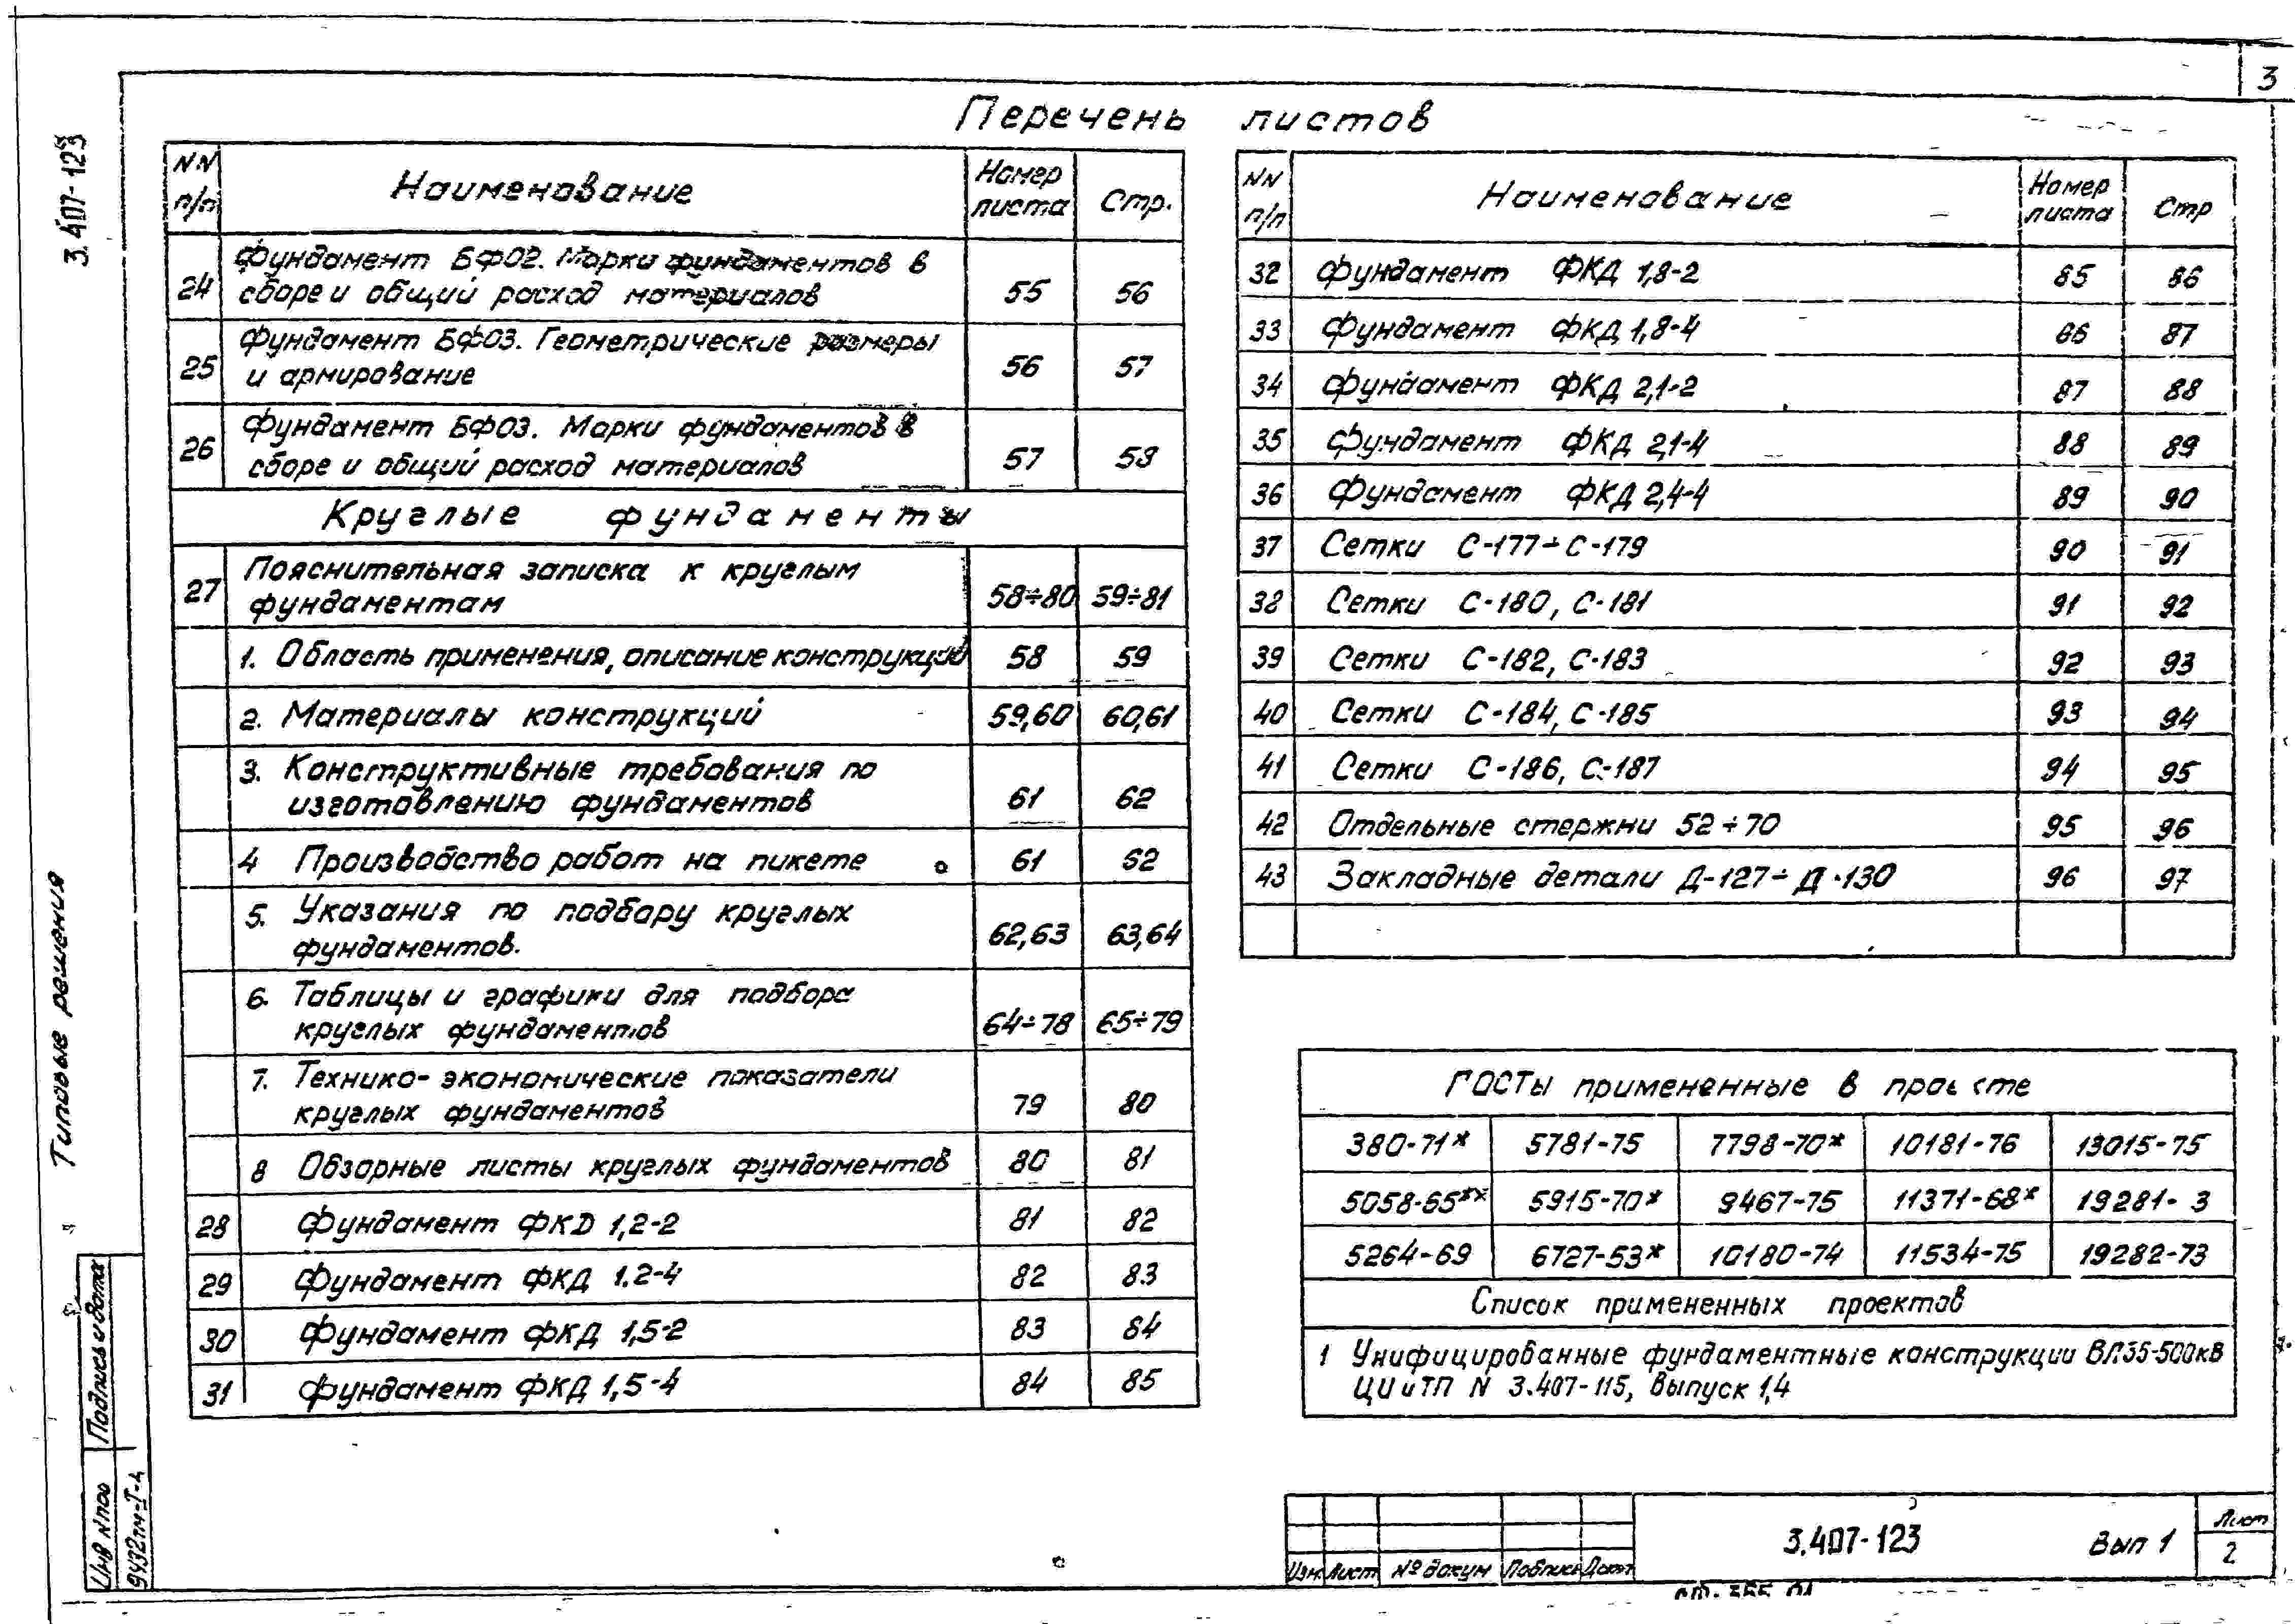 3
3.407-123
Типовые решения
Перечень листов
NN п/п Наименование Номер листа Стр.
24 Фундамент БФ02. Марки фундаментов в
сборе и общий расход материалов 55 56
25 Фундамент БФ03. Геометрические размеры
и армирование 56 57
26 Фундамент БФ03. Марки фундаментов в
сборе и общий расход материалов 57 58
Круглые фундаменты
27 Пояснительная записка к круглым
фундаментам 58÷80 59÷81
1. Область применения, описание конструкций 58 59
2. Материалы конструкций 59,60 60,61
3. Конструктивные требования по
изготовлению фундаментов 61 62
4 Производство работ на пикете 61 62
5. Указания по подбору круглых
фундаментов. 62,63 63,64
6. Таблицы и графики для подбора
круглых фундаментов 64÷78 65÷79
7. Технико-экономические показатели
круглых фундаментов 79 80
8 Обзорные листы круглых фундаментов 80 81
28 Фундамент ФКD 1,2-2 81 82
29 Фундамент ФКД 1.2-4 82 83
30 Фундамент ФКД 1,5-2 83 84
31 Фундамент ФКД 1,5-4 84 85
NN п/п Наименование Номер листа Стр
32 Фундамент ФКД 1,8-2 85 86
33 Фундамент ФКД 1,8-4 86 87
34 Фундамент ФКД 2,1-2 87 88
35 Фундамент ФКД 2,1-4 88 89
36 Фундамент ФКД 2,4-4 89 90
37 Сетки С-177÷С-179 90 91
38 Сетки С-180, С-181 91 92
39 Сетки С-182, С-183 92 93
40 Сетки С-184, С-185 93 94
41 Сетки С-186, С-187 94 95
42 Отдельные стержни 52÷70 95 96
43 Закладные детали Д-127÷Д-130 96 97
ГОСТы примененные в проекте
380-71* 5781-75 7798-70* 10181-76 13015-75
5058-65** 5915-70* 9467-75 11371-68* 19281- 3
5264-69 6727-53* 10180-74 11534-75 19282-73
Список примененных проектов
1 Унифицированные фундаментные конструкции ВЛ35-500кВ
ЦИиТП N 3.407-115, выпуск 1,4
Инв Nпод Подпись и дата
9432тм-I-4
Изм. Лист № докум Подпись Дата
3.407-123 Вып 1
Лист
2